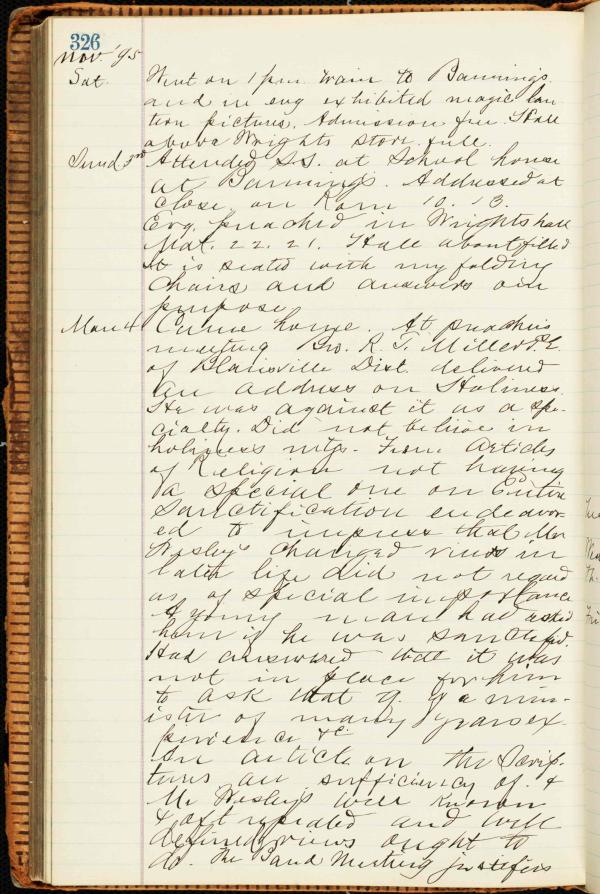 326
Nov. '95
Sat. Went on 1 p.m. train to Bannings
and in evg exhibited magic lan
tern pictures. Admission free. Hall
above Wrights store full.
Sund 3rd Attended S.S. at School house
at Bannings. Addressed at
close on Rom 10. 13.
Evg. preached in Wrights hall
Mat. 22. 21. Hall about filled
It is seated with my folding
chairs and answers our
purpose
Mon 4 Came home. At preachers
meeting Bro. R. T. Miller P.E.
of Blairsville Dist. delivered
an address on Holiness.
He was against it as a spe-
cialty. Did not believe in
holiness mtgs. From Articles
of Religion not having
a special one on Entire
Sanctification endeavor-
ed to impress that Mr
Wesley's changed views in
later life did not regard
as of special importance
A young man had asked
him if he was sanctified.
Had answered that it was
not in place for him
to ask that of a min-
ister of many years ex
perience &c.
An article on the Scrip-
tures an sufficiency of. &
Mr Wesley's well known
& oft repeated and well
defined views ought to
do. The Band Meeting justifies